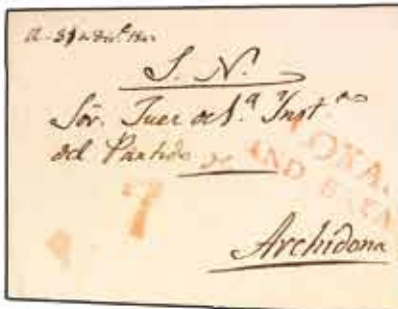 S. N.
Sôr. Juez de 1.ª Inst.ª
del Partido de
LOXA.
AND BAXA
7
Archidona